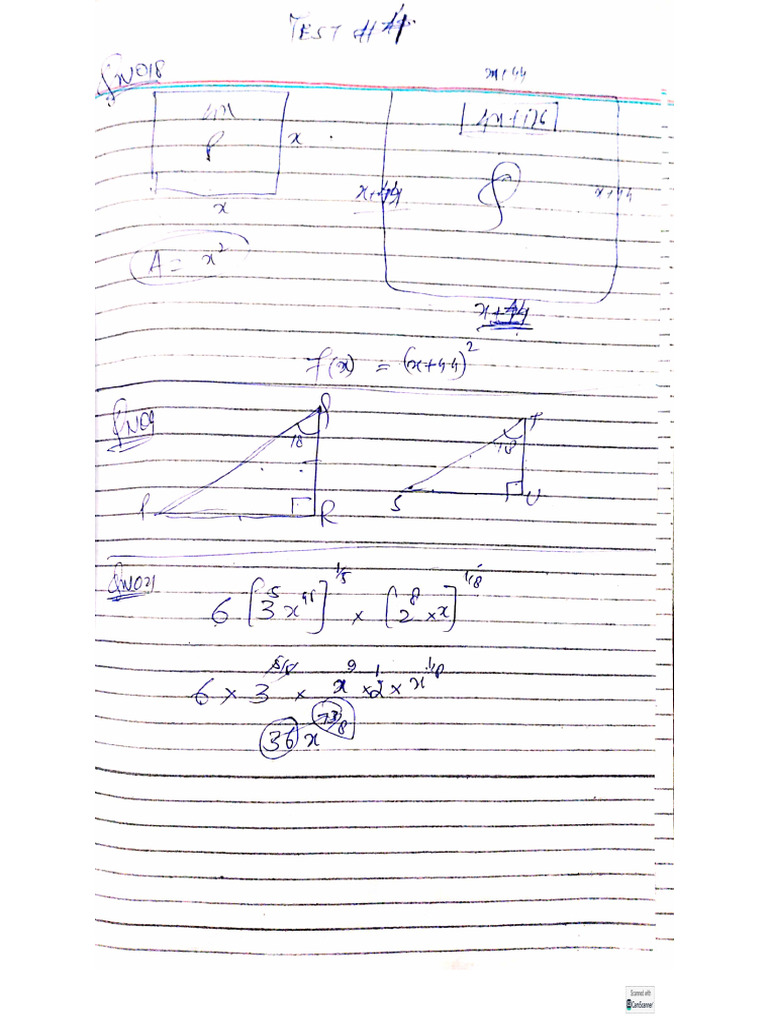 TEST # 4
QNO18
4x
P
x
x
A = x²
x+44
4x+176
P
x+44
x+44
x+44
f(x) = (x+44)²
QNO9
Q
18
P
R
T
18
S
U
QNO21
6 [3⁵ x⁴⁵]^1/5 × [2⁸ × x]^1/8
6 × 3^5/5 × x⁹ × 2¹ × x^1/8
36 x^73/8
Scanned with
CamScanner